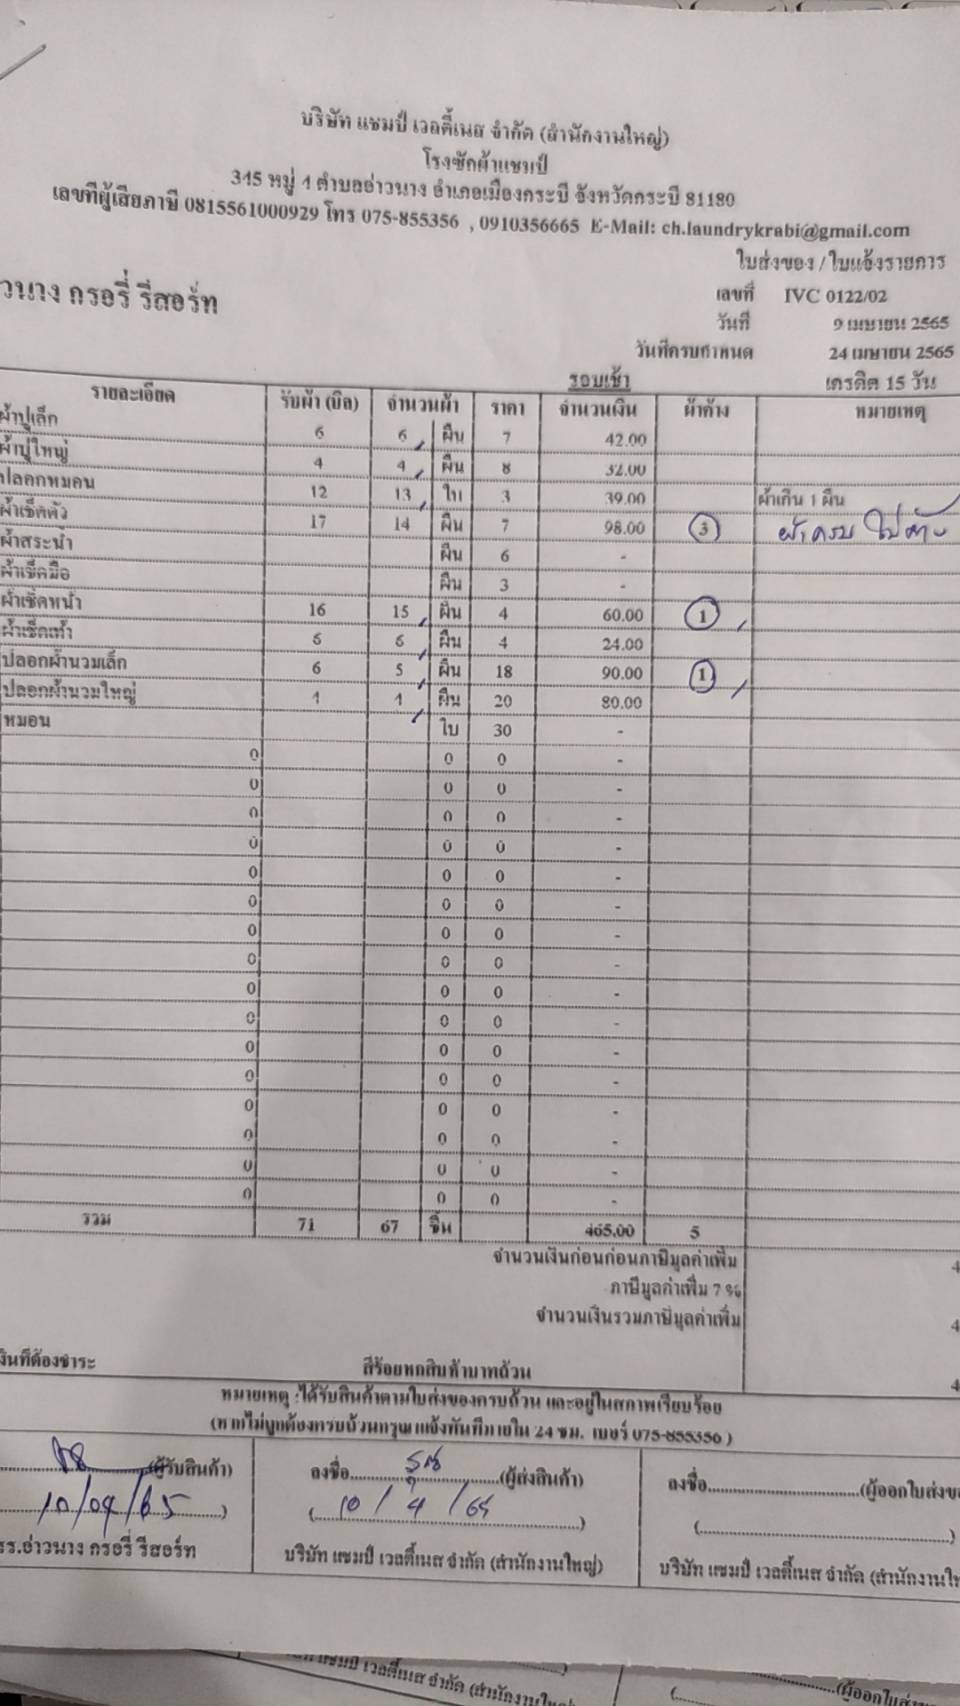 บริษัท แชมป์ เวลตี้เนส จำกัด (สำนักงานใหญ่)
โรงซักผ้าแชมป์
345 หมู่ 4 ตำบลอ่าวนาง อำเภอเมืองกระบี่ จังหวัดกระบี่ 81180
เลขที่ผู้เสียภาษี 0815561000929 โทร 075-855356 , 0910356665 E-Mail: ch.laundrykrabi@gmail.com
ใบส่งของ / ใบแจ้งรายการ
วนาง กรอรี่ รีสอร์ท
เลขที่ IVC 0122/02
วันที่ 9 เมษายน 2565
วันที่ครบกำหนด 24 เมษายน 2565
รอบเช้า เครดิต 15 วัน
รายละเอียด รับผ้า (บิล) จำนวนผ้า ราคา จำนวนเงิน ผ้าค้าง หมายเหตุ
ผ้าปูเล็ก 6 6 ผืน 7 42.00
ผ้าปูใหญ่ 4 4 ผืน 8 32.00
ปลอกหมอน 12 13 ใบ 3 39.00 ผ้าเกิน 1 ผืน
ผ้าเช็ดตัว 17 14 ผืน 7 98.00 3 ผ้าครบ ไม่ค้าง
ผ้าสระน้ำ ผืน 6 -
ผ้าเช็ดมือ ผืน 3 -
ผ้าเช็ดหน้า 16 15 ผืน 4 60.00 1
ผ้าเช็ดเท้า 6 6 ผืน 4 24.00
ปลอกผ้านวมเล็ก 6 5 ผืน 18 90.00 1
ปลอกผ้านวมใหญ่ 4 4 ผืน 20 80.00
หมอน ใบ 30 -
0 0 0 -
0 0 0 -
0 0 0 -
0 0 0 -
0 0 0 -
0 0 0 -
0 0 0 -
0 0 0 -
0 0 0 -
0 0 0 -
0 0 0 -
0 0 0 -
0 0 0 -
0 0 0 -
0 0 0 -
0 0 0 -
รวม 71 67 ชิ้น 465.00 5
จำนวนเงินก่อนก่อนภาษีมูลค่าเพิ่ม 4
ภาษีมูลค่าเพิ่ม 7 %
จำนวนเงินรวมภาษีมูลค่าเพิ่ม 4
งินที่ต้องชำระ สี่ร้อยหกสิบห้าบาทถ้วน 4
หมายเหตุ :ได้รับสินค้าตามใบส่งของครบถ้วน และอยู่ในสภาพเรียบร้อย
(หากไม่ถูกต้องครบถ้วนกรุณาแจ้งทันทีภายใน 24 ชม. เบอร์ 075-855356 )
(ผู้รับสินค้า) ลงชื่อ (ผู้ส่งสินค้า) ลงชื่อ (ผู้ออกใบส่งขอ
10/04/65 ) ( 10 / 4 / 65 ) ( )
รร.อ่าวนาง กรอรี่ รีสอร์ท บริษัท แชมป์ เวลตี้เนส จำกัด (สำนักงานใหญ่) บริษัท แชมป์ เวลตี้เนส จำกัด (สำนักงานให
แชมป์ เวลตี้เนส จำกัด (สำนักงานใหญ่) (ผู้ออกใบส่ง